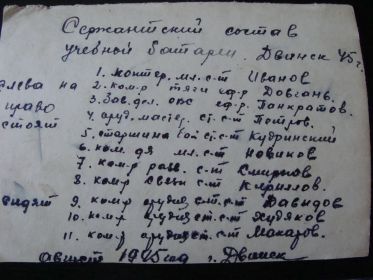 Сержантский состав
учебной батареи. Двинск 45 г.
1. монтер. мл. с-т Иванов
слева на 2. ком-р тяги еф-р Довгань.
право 3. Зав. дел. опс еф-р. Панкратов.
стоят 4. арт. мастер. ст. с-т Петров.
5. старшина бат. ст. с-т Кудринский
6. ком. мл. с-т Новиков
7. ком-р разв. с-т Смирнов
8. ком-р связи с-т Кириллов.
сидят 9. ком-р орудия ст. с-т Давидов
10. ком-р орудия ст. с-т Худяков
11. ком-р орудия ст. с-т Макаров.
август 1945 год г. Двинск